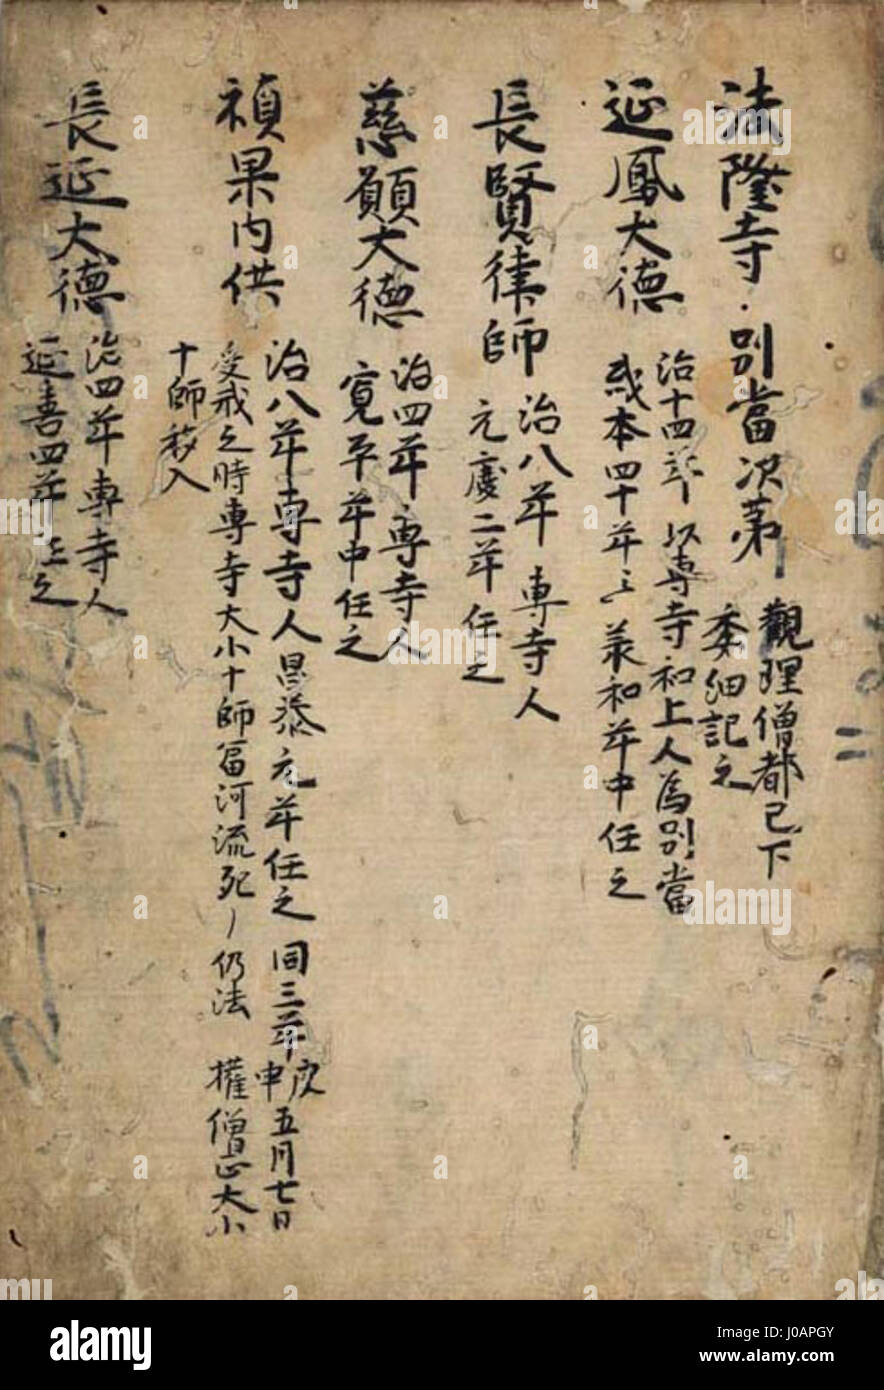 法隆寺別當次第
觀理僧都已下
委細記之
延鳳大德
治十四年以専寺和上人為別當
或本四十年云々 承和年中任之
長賢律師
治八年 専寺人
元慶二年任之
慈願大德
治四年専寺人
寛平年中任之
禎果内供
治八年専寺人 昌泰元年任之 同三年庚申五月七日
受戒之時専寺大小十師冨河流死 仍法 權僧正大小
十師移入
長延大德
治四年専寺人
延喜四年任之
alamy
Image ID: J0APGY
www.alamy.com